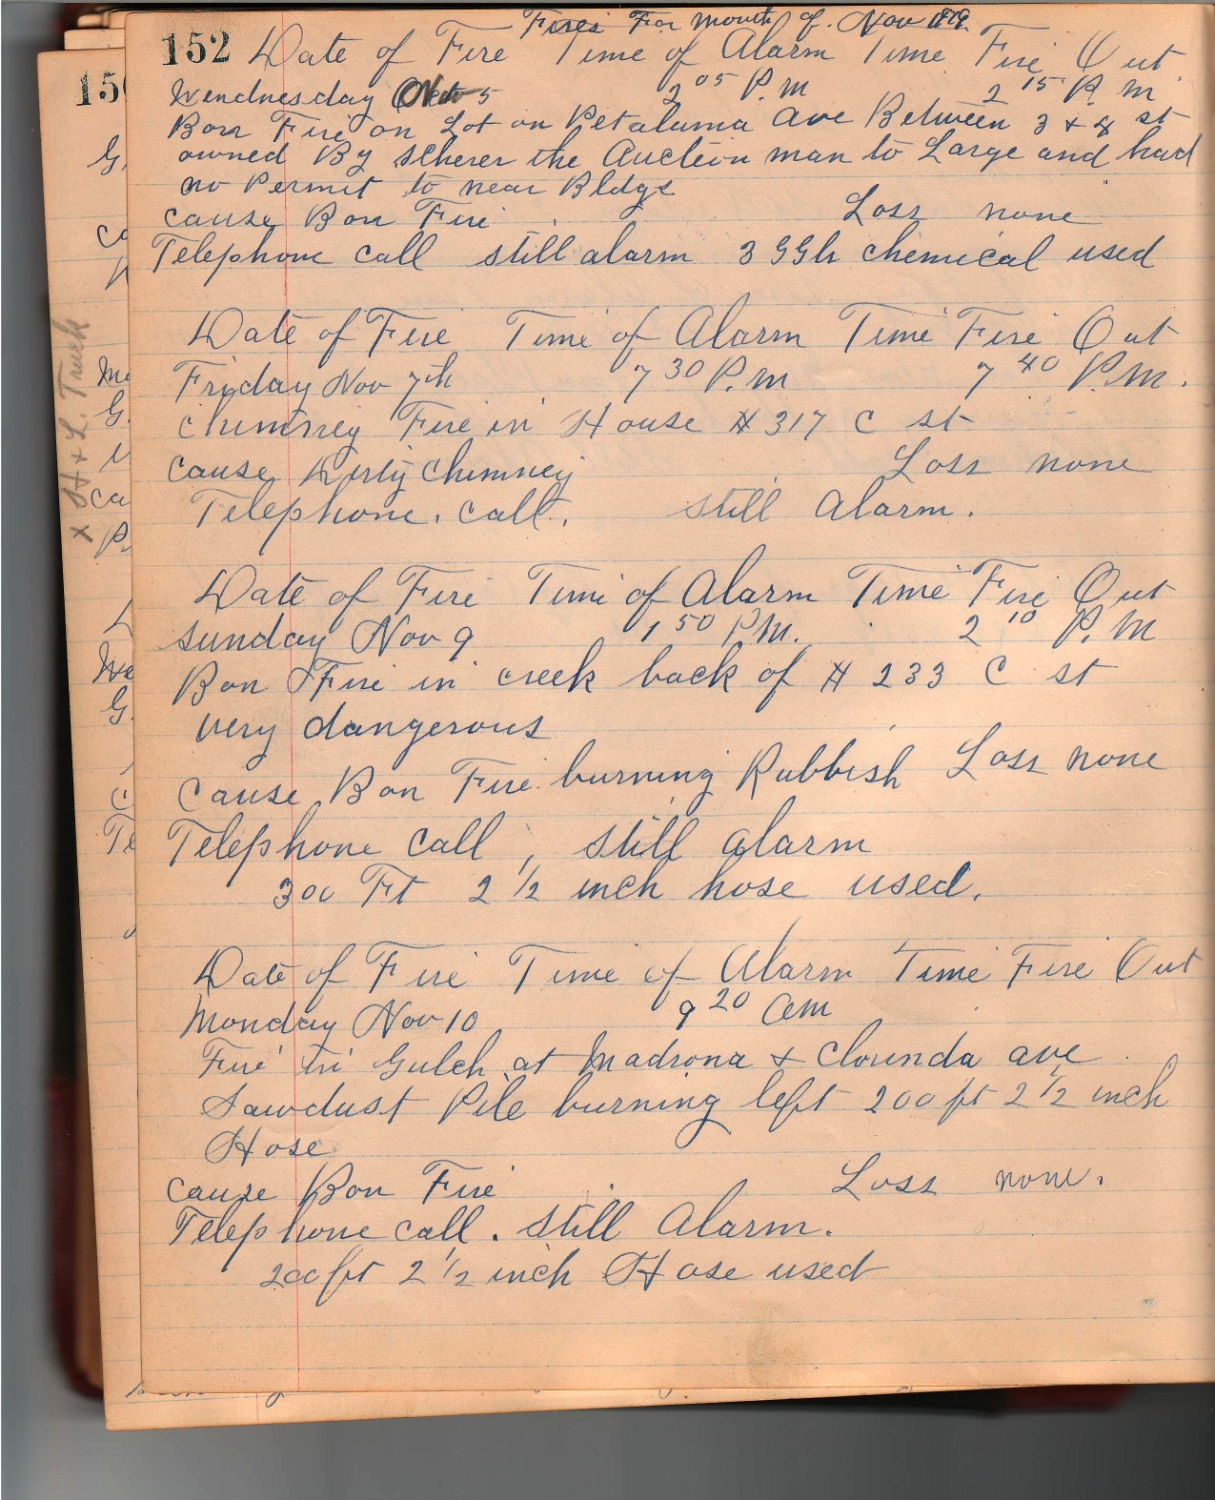 Fires For Month of Nov 1919.
152 Date of Fire Time of Alarm Time Fire Out
150
Wendnesday Nov 5 2 05 P.M 2 15 P.M
Bon Fire on Lot on Petaluma Ave Between 3 + 4 st
owned By Scherer the Auction man to Large and had
no Permit to near Bldgs
cause Bon Fire Loss none
Telephone call still alarm 3 Ggls chemical used
Date of Fire Time of Alarm Time Fire Out
Friday Nov 7th 7 30 P.M 7 40 P.M.
chimney Fire in House # 317 C st
cause Dirty Chimney Loss none
Telephone. call. still Alarm.
x H & L. Truck
Date of Fire Time of Alarm Time Fire Out
Sunday Nov 9 1 50 P.M. 2 10 P.M
Bon Fire in creek back of # 233 C st
very dangerous
cause Bon Fire burning Rubbish Loss none
Telephone call, still alarm
300 Ft 2 1/2 inch hose used.
Date of Fire Time of Alarm Time Fire Out
Monday Nov 10 9 20 am
Fire in Gulch at Madrona + Clorinda ave
Sawdust Pile burning left 200 ft 2 1/2 inch
Hose
cause Bon Fire Loss none.
Telephone call. still Alarm.
200 ft 2 1/2 inch Hose used